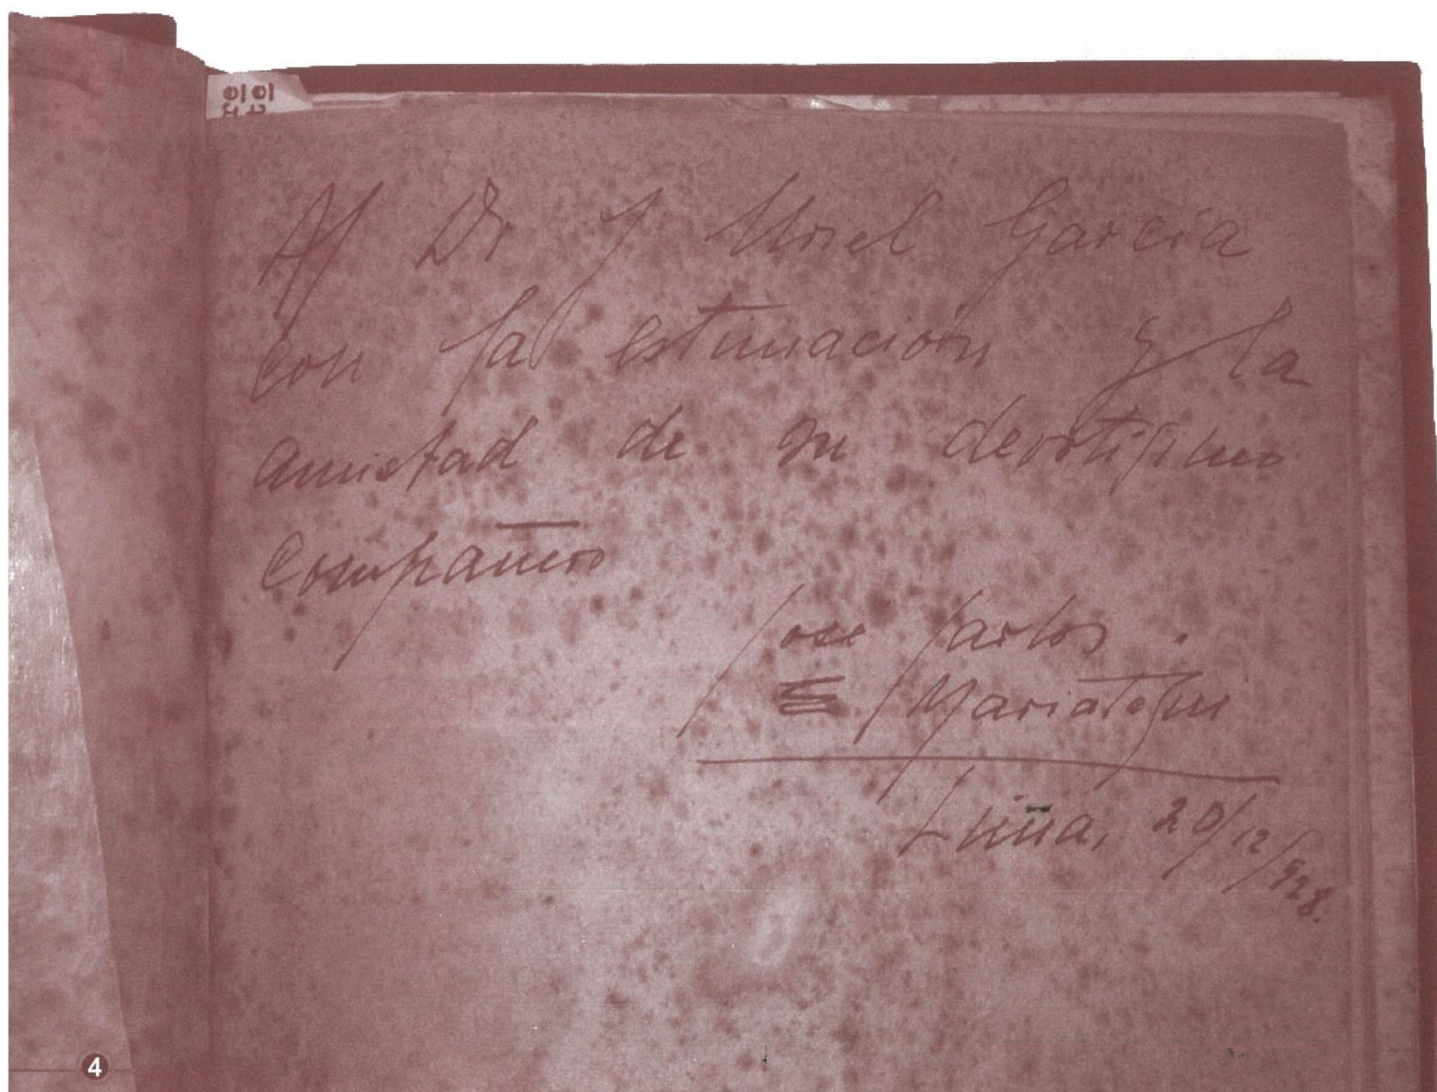 Al Dr J Uriel García
con la estimación y la
amistad de su devotísimo
compañero
José Carlos
Mariátegui
Lima, 20/12/928.
4